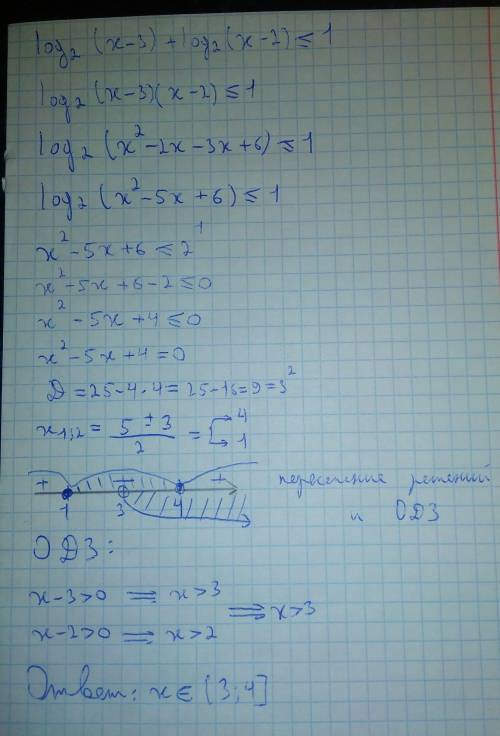 log₂ (x-3) + log₂ (x-2) ≤ 1
log₂ (x-3)(x-2) ≤ 1
log₂ (x² - 2x - 3x + 6) ≤ 1
log₂ (x² - 5x + 6) ≤ 1
x² - 5x + 6 ≤ 2¹
x² - 5x + 6 - 2 ≤ 0
x² - 5x + 4 ≤ 0
x² - 5x + 4 = 0
D = 25 - 4·4 = 25 - 16 = 9 = 3²
x₁,₂ = (5 ± 3)/2 = [→ 4 → 1
+ − +
1 3 4
пересечение решений
и ОДЗ
ОДЗ:
x-3>0 ⇒ x>3
⇒ x>3
x-2>0 ⇒ x>2
Ответ: x ∈ (3; 4]